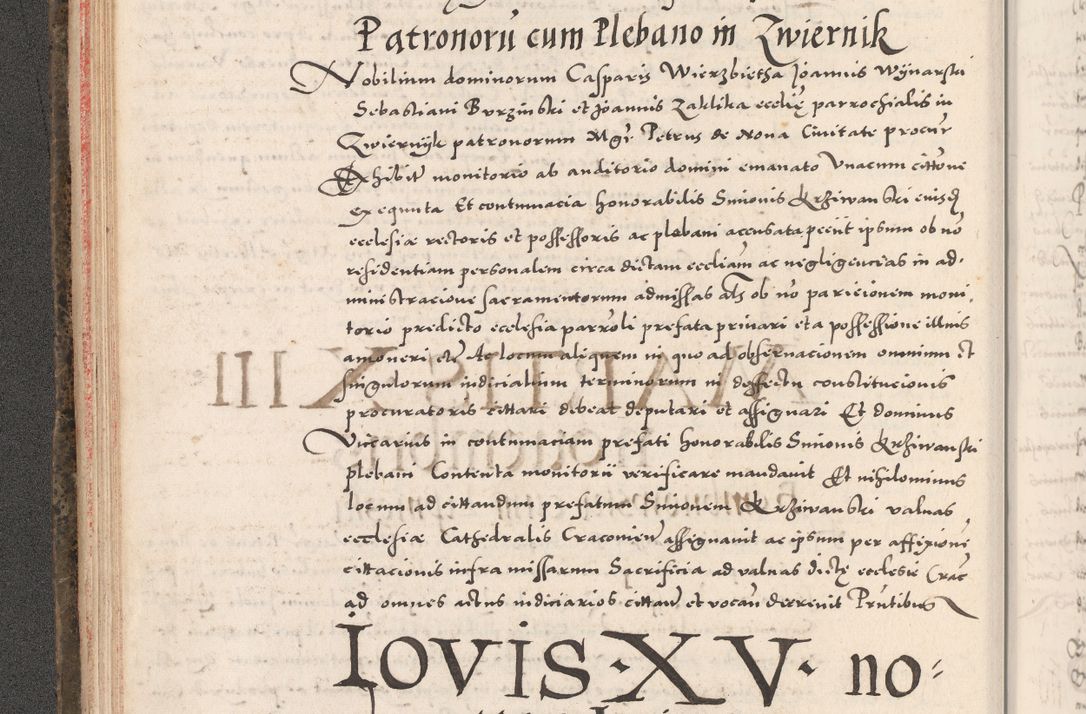 Patronorū cum Plebano in Zwiernik
Nobilium dominorum Casparis Wierzbietha Joannis Wÿnarski
Sebastiani Burzinski et Joannis Zaklika eccliȩ parrochialis in
Zwiernÿk patronorum Mgr Petrus de Nona Ciuitate procur
Exhibit monitorio ab auditorio domini emanato Vnacum cittōne
ex equuta Et contumacia honorabilis Simonis Krziwanski euisdē
ecclesiæ rectoris et possessoris ac plebani accusata peciit ipsum ob nō
residentiam personalem circa dictam eccliam ac negligencias in ad-
ministracione sacramentorum admissas als ob nō paricionem moni,
torio predicto ecclesia parrōli prefata priuari et a possessione illius
amoueri etc Ac locum aliquem in quo ad obseruacionem omnium et
singulorum iudicialium terminorum in deffectu constitucionis
procuratoris cittari debeat deputari et assignari Et dominus
Viccarius in contumaciam prefati honorabilis Simonis Krziwanski
plebani Contenta monitorii verificare mandauit Et nihilominus
locum ad cittandum prefatum Simonem Krziwanski valuas
ecclesiæ Cathedralis Cracouien assignauit ac ipsum per affixionē
cittacionis infra missarum Sacrificia ad valuas dictȩ ecclesie Crac
ad omnes actus iudiciarios cittan et vocan decreuit Pn̄tibus
IOVIS · XV · no=